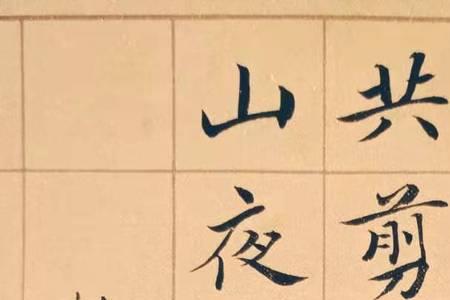 共剪
山夜